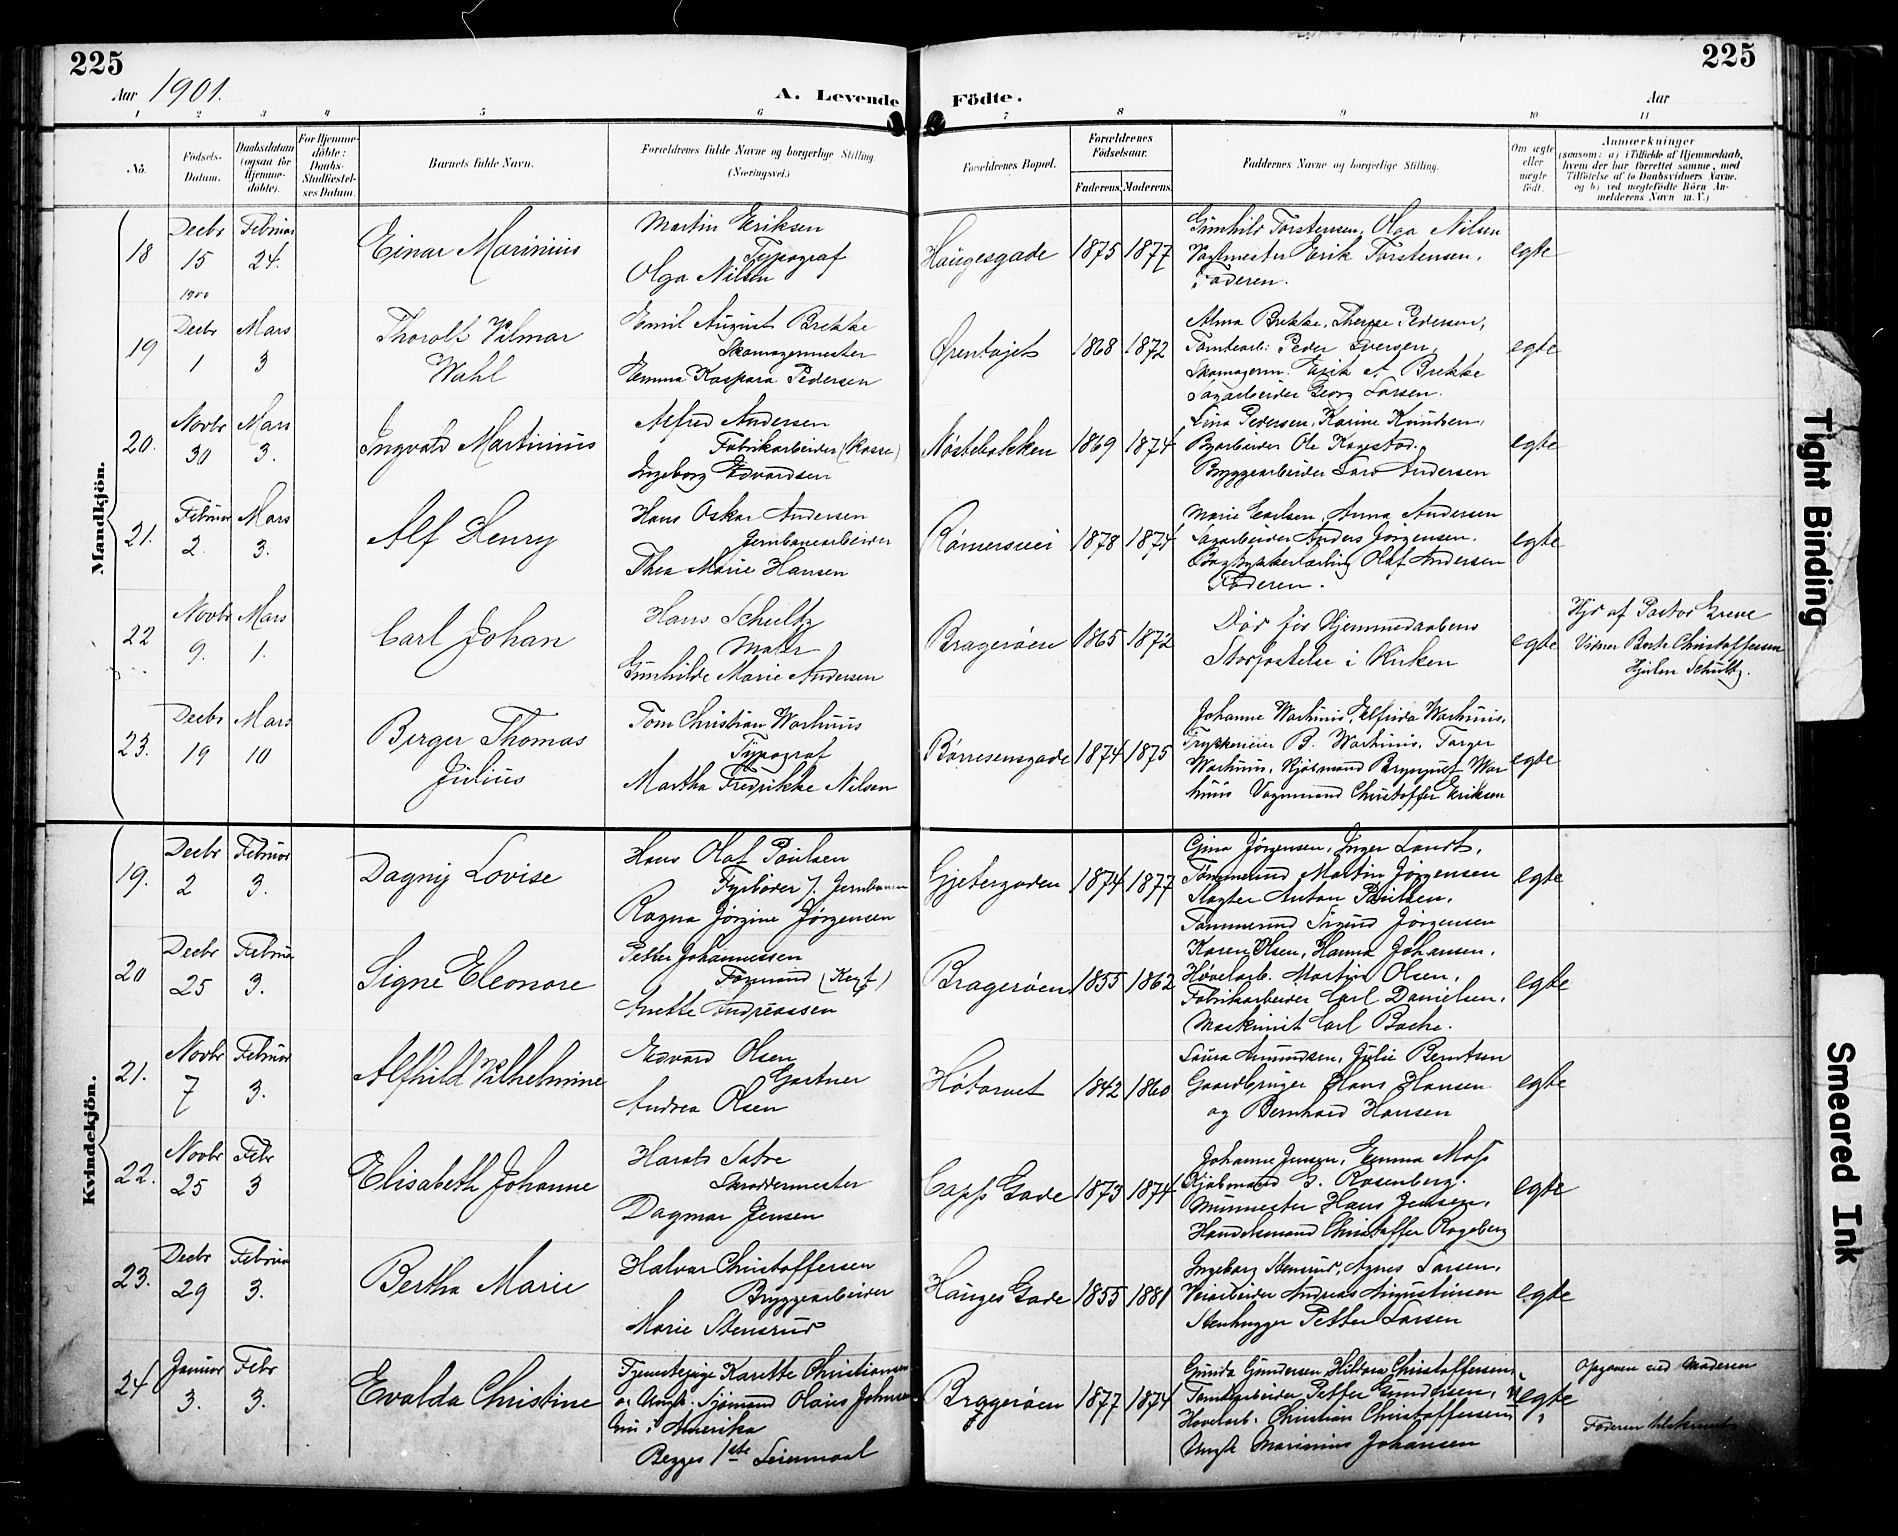 225
225
Aar 1901.
A. Levende Födte.
Aar
1 2 3 4 5 6 7 8 9 10 11
No.
Födsels-Datum.
Daabsdatum (ogsaa for Hjemmedöbte).
For Hjemmedöbte: Daabs-Stadfæstelses Datum.
Barnets fulde Navn.
Forældrenes fulde Navne og borgerlige Stilling. (Næringsvei.)
Forældrenes Bopæl.
Forældrenes Födselsaar.
Faderens. Moderens.
Faddernes Navne og borgerlige Stilling.
Om ægte eller uægte födt.
Anmærkninger
(saasom: a) i Tilfælde af Hjemmedaab,
hvem der har forrettet samme, med
Tilföielse af to Daabsvidners Navne,
og b) ved uægtefödte Börn An-
melderens Navn m. V.)
Mandkjön.
18 Decbr 15 1900 Februar 24. Einar Marinius
Martin Eriksen
Typograf
Olga Nilsen
Haugesgade 1875 1877
Gunhild Torstensen, Olga Nilsen
Vagtmester Erik Torstensen,
Faderen.
egte
19 Decbr 1 Mars 3 Thorolf Vilmar
Wahl
Emil August Brekke
Skomagermester
Emma Kaspara Pedersen
Örentøjet 1868 1872
Alma Brekke, Therese Pedersen,
Tomtearb: Peder Iversen,
Skomagerm. Erik A Brekke
Sagarbeider Georg Larsen.
egte
20. Novbr 30 Mars 3. Ingvald Martinius
Alfred Andersen
Fabrikarbeider (Kasse)
Ingeborg Edvardsen
Nøstebakken 1869 1874
Lina Pedersen, Karine Knudsen,
Byarbeider Ole Kagestad.
Bryggearbeider Lars Andersen
egte
21. Februar 2. Mars 3. Alf Henry
Hans Oskar Andersen
Jernbanearbeider
Thea Marie Hansen
Rømersvei 1878 1874
Marie Carlsen, Anna Andersen
Sagarbeider Anders Jörgensen.
Bogtrykkerlærling Olaf Andersen
Faderen.
egte
22 Novbr 9. Mars 1. Carl Johan
Hans Schultz
Maler
Gunhilde Marie Andersen
Bragerøen 1865 1872
Død før Hjemmedaabens
Stadfæstelse i Kirken
egte
Hjd af Pastor Greve
Vidner Berte Christoffersen
Hjalm Schultz.
23. Decbr 19 Mars 10 Birger Thomas
Julius
Tom Christian Warhuus
Typograf
Martha Fredrikke Nilsen
Börresensgade 1874 1875
Johanne Warhuus, Elfrida Warhuus,
Trykkerieier B. Warhuus, Torger
Warhuus, Kjøbmand Brynjulf War
huus Vognmand Christoffer Eriksen
egte
Kvindekjön.
19. Decbr 2 Februar 3. Dagny Lovise
Hans Olaf Paulsen
Fyrbøder v. Jernbanen
Ragna Jörgine Jörgensen
Gjetergaden 1874 1877
Gina Jörgensen, Inger Landt,
Tømmermd Martin Jörgensen
Slagter Anton Paulsen,
Tømmermd Sigurd Jörgensen
egte
20 Decbr 25 Februar 3. Signe Eleonore
Petter Johannessen
Formand
Anette Andreassen
Bragerøen 1855 1862
Karen Olsen, Hanna Johansen,
Høvelarb. Martin Olsen,
Fabrikarbeider Carl Danielsen,
Maskinist Carl Bache.
egte
21. Novbr 7 Februar 3. Alfhild Vilhelmine
Edvard Olsen
Gartner
Andrea Olsen
Høtorvet 1842 1860
Laura Amundsen, Julie Berntsen
Gaardbruger Hans Hansen
og Bernhard Hansen
egte
22. Novbr 25 Febr 3 Elisabeth Johanne
Harald Sætre
Skræddermester
Dagmar Jensen
Capps Gade 1873 1874
Johanne Jensen, Emma Moss
Kjøbmand G. Rosenberg.
Murmester Hans Jensen,
Handelsmand Christoffer Rogeberg
egte
23. Decbr 29 Februar 3. Bertha Marie
Halvar Christoffersen
Bryggearbeider
Marie Stensrud
Hauges Gade 1855 1881
Ingeborg Stensrud, Agnes Larsen,
Veiarbeider Andreas Augustinsen
Stenhugger Petter Larsen
egte
24 Januar 3. Febr 3. Evalda Christine
Tjenestepige Karette Christiansen
og Ungk. Sjømand Olaus Johnsen
nu i Amerika
Begges 1ste Leiermaal
Bragerøen 1877 1874
Gunda Gundersen, Hildora Christoffersen,
Tomtearbeider Petter Gundersen,
Høvelarb. Christian Christoffersen
Ungk Marinius Johansen
uegte
Opgaven ved Moderen
Faderen
Tight Binding
Smeared Ink